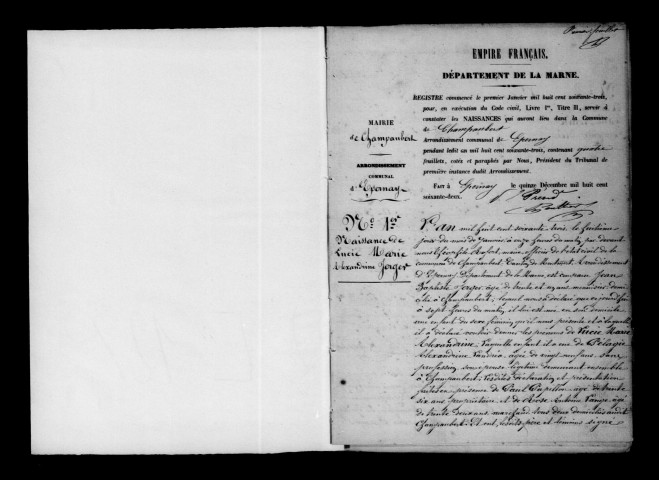 EMPIRE FRANÇAIS.
DÉPARTEMENT DE LA MARNE.
REGISTRE commencé le premier Janvier mil huit cent soixante-trois,
pour, en exécution du Code civil, Livre Ier, Titre II, servir à
constater les NAISSANCES qui auront lieu dans la Commune
de Champaubert
Arrondissement communal de Epernay
pendant ledit an mil huit cent soixante-trois, contenant quatre
feuillets, cotés et paraphés par Nous, Président du Tribunal de
première instance dudit Arrondissement.
FAIT à Epernay le quinze Décembre mil huit cent
soixante-deux.
MAIRIE
de Champaubert
ARRONDISSEMENT
COMMUNAL
d'Epernay
No. 1er
Naissance de
Lucie Marie
Alexandrine Jorget
L'an mil huit cent soixante trois, le
jour du mois de Janvier à onze heures du matin, par devant
nous maire, officier de l'état civil de la
commune de Champaubert, Canton de Montmort, Arrondissement
d'Epernay, Département de la Marne, est comparu Jean
Baptiste Jorget, âgé de trente et ans, domi-
cilié à Champaubert; lequel nous a déclaré que
à sept heures du matin, il lui est né en son domicile
un enfant du sexe féminin, qu'il nous présente et auquel
il a déclaré vouloir donner les prénoms de Lucie Marie
Alexandrine, laquelle enfant il a eue de Pélagie
Alexandrine, âgée de vingt ans, sans
profession, son épouse légitime demeurant ensemble
à Champaubert; lesdites déclaration et présentation
faites en présence de Paul âgé de trente
six ans propriétaire et de Rose Antoine âgé
de trente deux ans, marchand tous deux domiciliés audit
Champaubert; Et ont, lesdits père et témoins signé